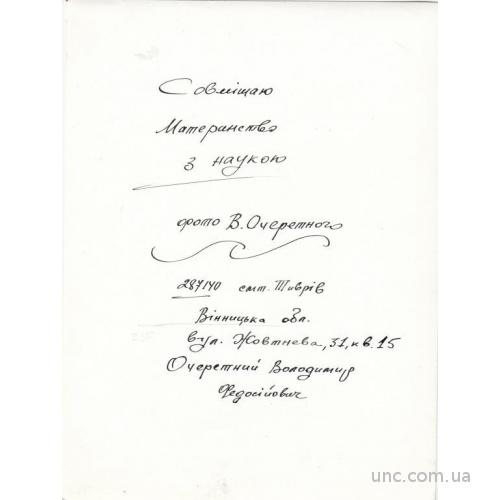 Совміщаю
Материнство
з наукою
фото В. Очеретного
287140 смт. Тиврів
Вінницька обл.
вул. Жовтнева, 31, кв. 15
Очеретний Володимир
Федосійович
unc.com.ua